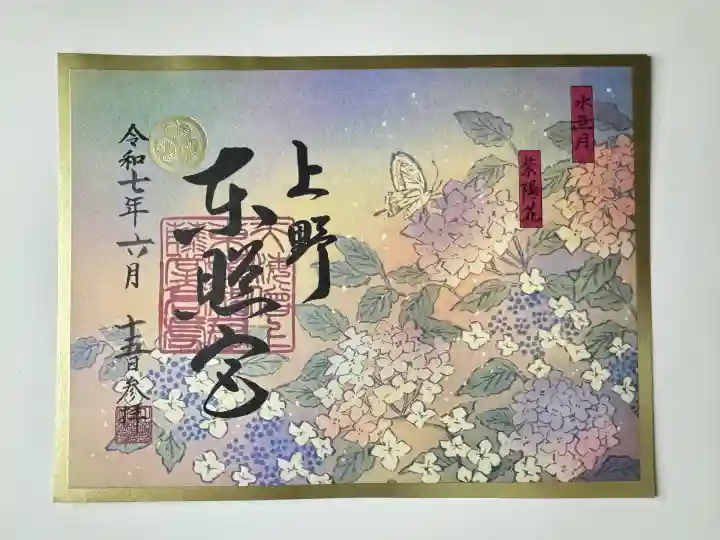 水無月
紫陽花
上野
東照宮
令和七年六月十五日参拝